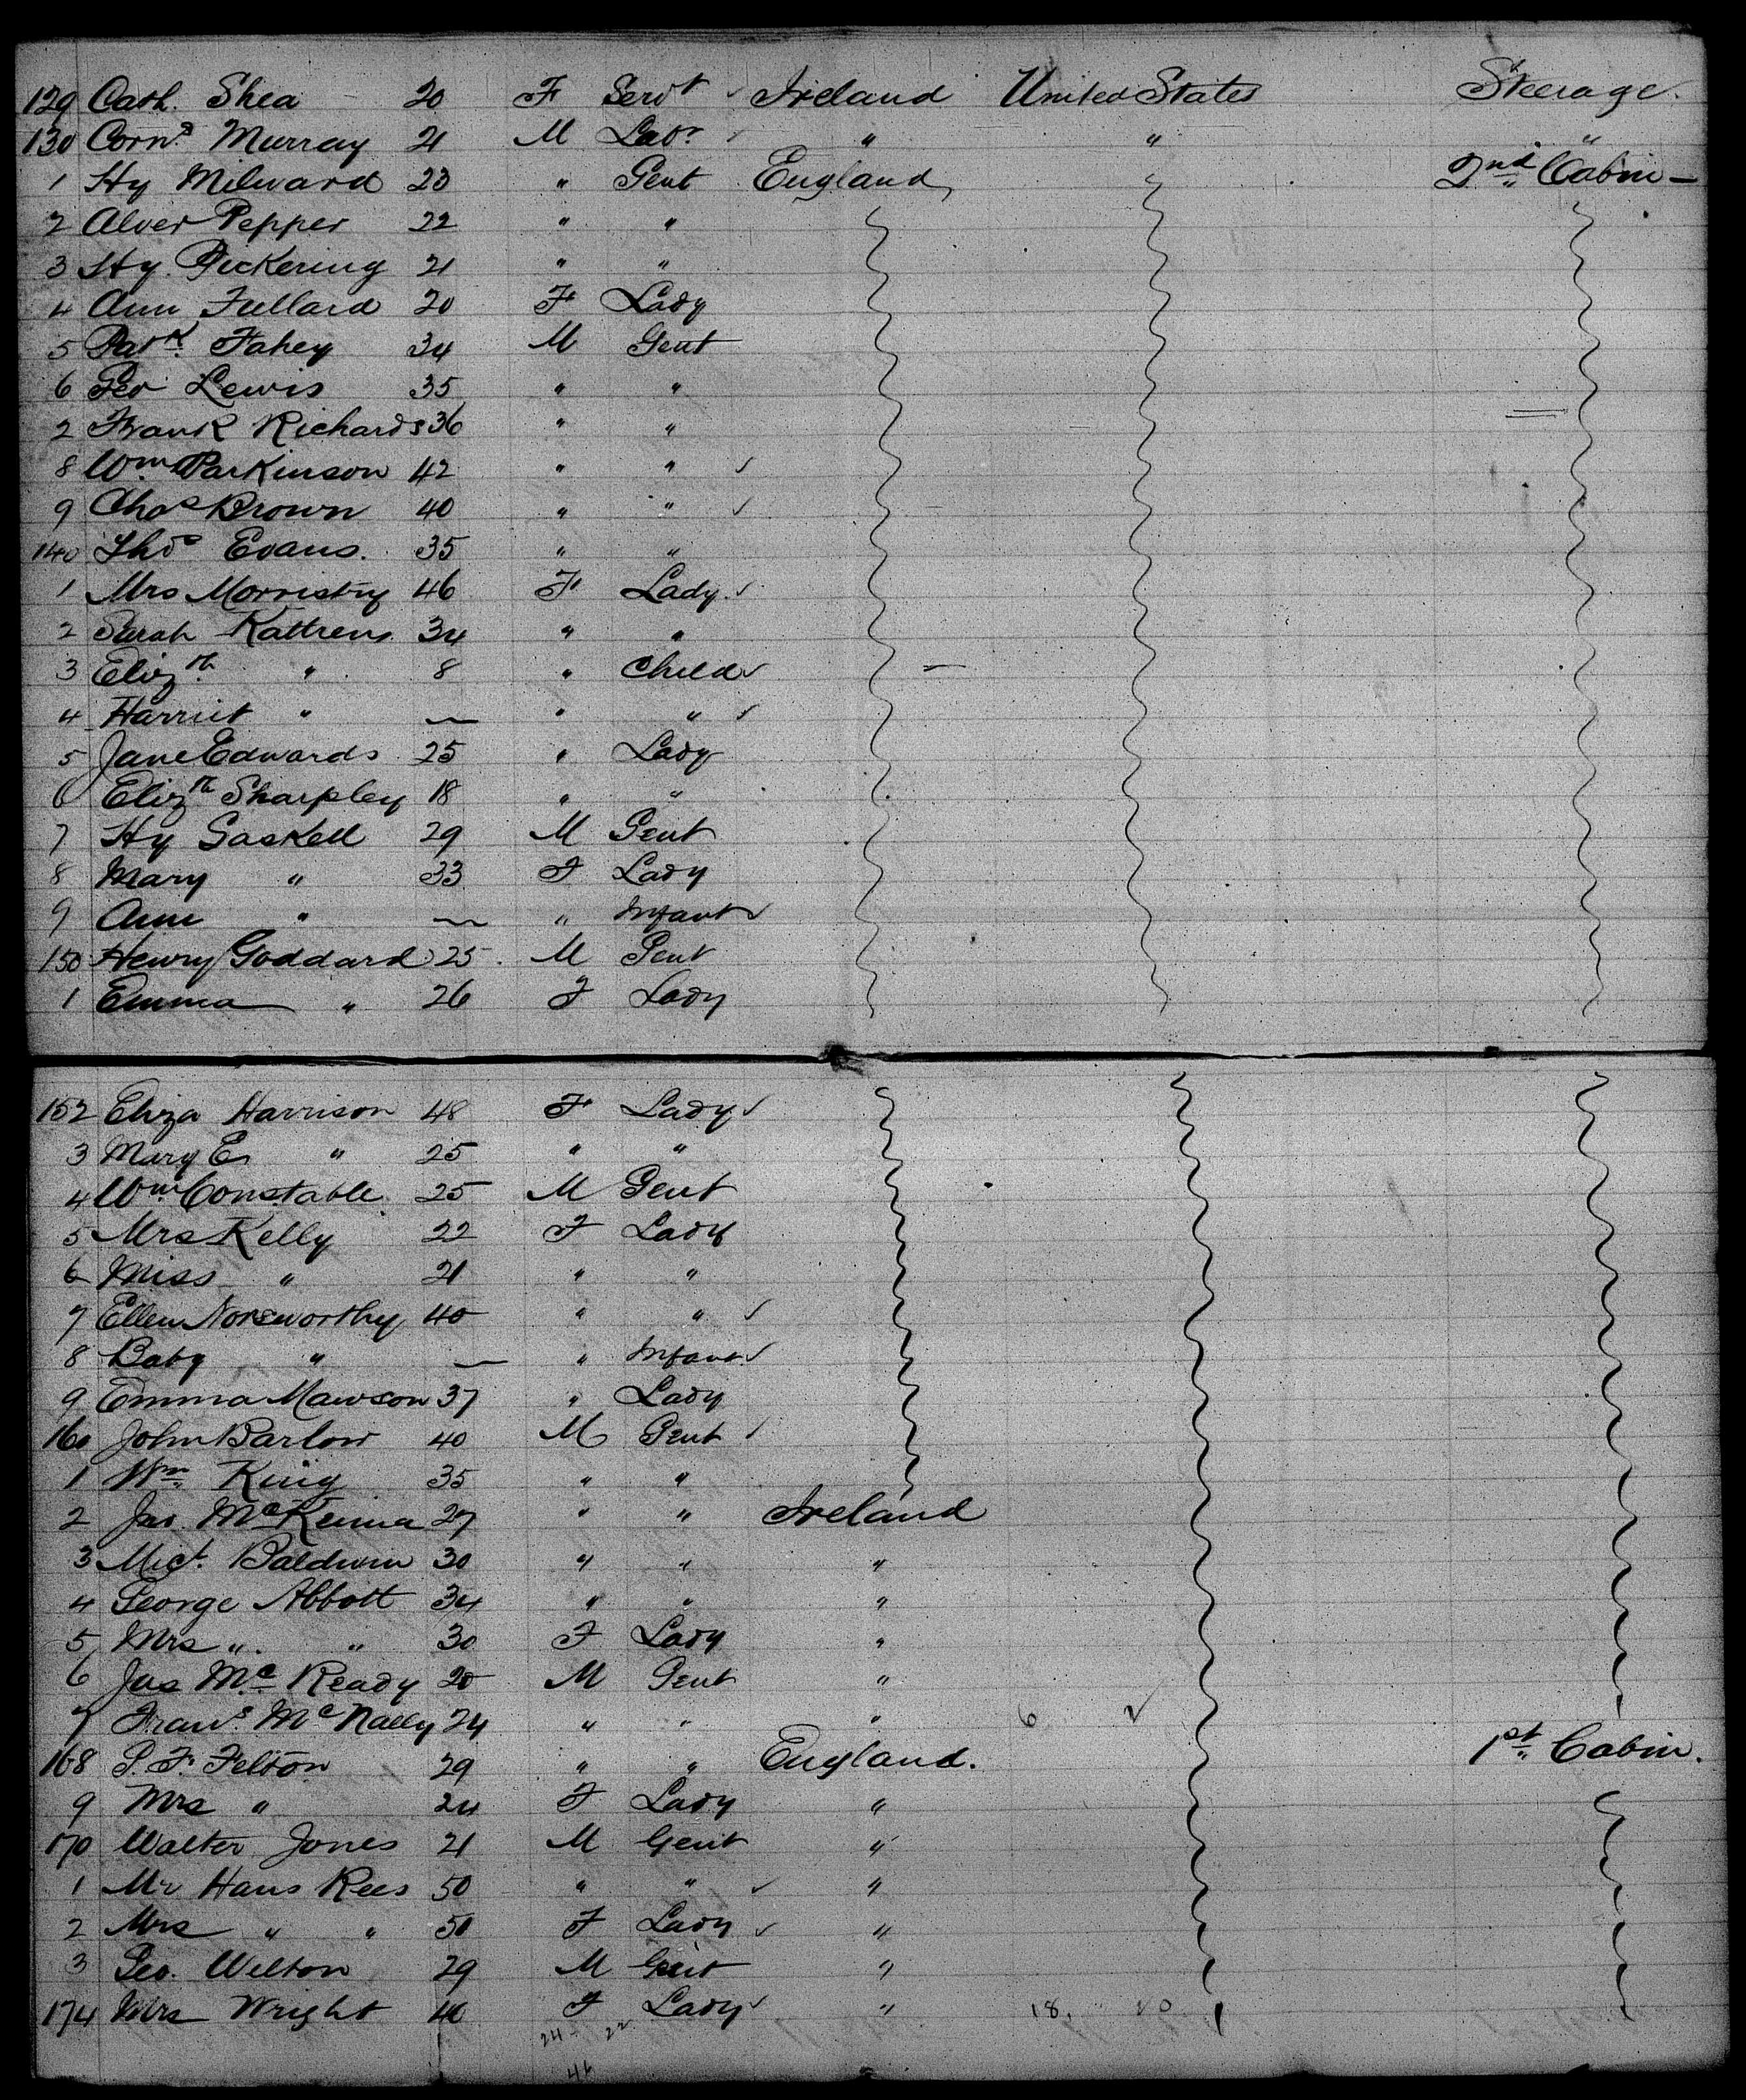 129 Cath. Shea 20 F Servt Ireland United States Steerage.
130 Corns Murray 21 M Labr " " "
1 Hy Milward 23 " Gent England " 2nd Cabin -
2 Alver Pepper 22 " "
3 Hy. Pickering 21 " "
4 Ann Fullard 20 F Lady
5 Patk. Fahey 34 M Gent
6 Geo Lewis 35 " "
7 Frank Richards 36 " "
8 Wm Parkinson 42 " " ✓
9 Chas Brown 40 " " ✓
140 Thos Evans. 35 " "
1 Mrs 46 F Lady. ✓
2 Sarah Kattrens 34 " "
3 Elizth " 8 " Child ✓
4 Harriet " — " " ✓
5 Jane Edwards 25 " Lady
6 Elizth Sharpley 18 " "
7 Hy Gaskell 29 M Gent
8 Mary " 33 F Lady
9 Ann " — " Infant ✓
150 Henry Goddard 25 M Gent
1 Emma " 26 F Lady
152 Eliza Harrison 48 F Lady ✓
3 Mary E. " 25 " "
4 Wm Constable 25 M Gent
5 Mrs Kelly 22 F Lady
6 Miss " 21 " "
7 Ellen Norsworthy 40 " " ✓
8 Baby " — " Infant ✓
9 Emma Mawson 37 " Lady
160 John Barlow 40 M Gent ✓
1 Wm King 35 " "
2 Jas. McKenna 27 " " Ireland
3 Micl. Baldwin 30 " " "
4 George Abbott 34 " " "
5 Mrs " " 30 F Lady "
6 Jas McReady 20 M Gent "
7 Frans. McNally 24 " " " 6 ✓
168 P. F. Felton 29 " " England. 1st Cabin.
9 Mrs " 24 F Lady "
170 Walter Jones 21 M Gent "
1 Mr Hans Rees 50 " " ✓ "
2 Mrs " " 50 F Lady ✓ "
3 Geo. Welton 29 M Gent "
174 Mrs Wright 40 F Lady ✓ " 18.
24 22
46